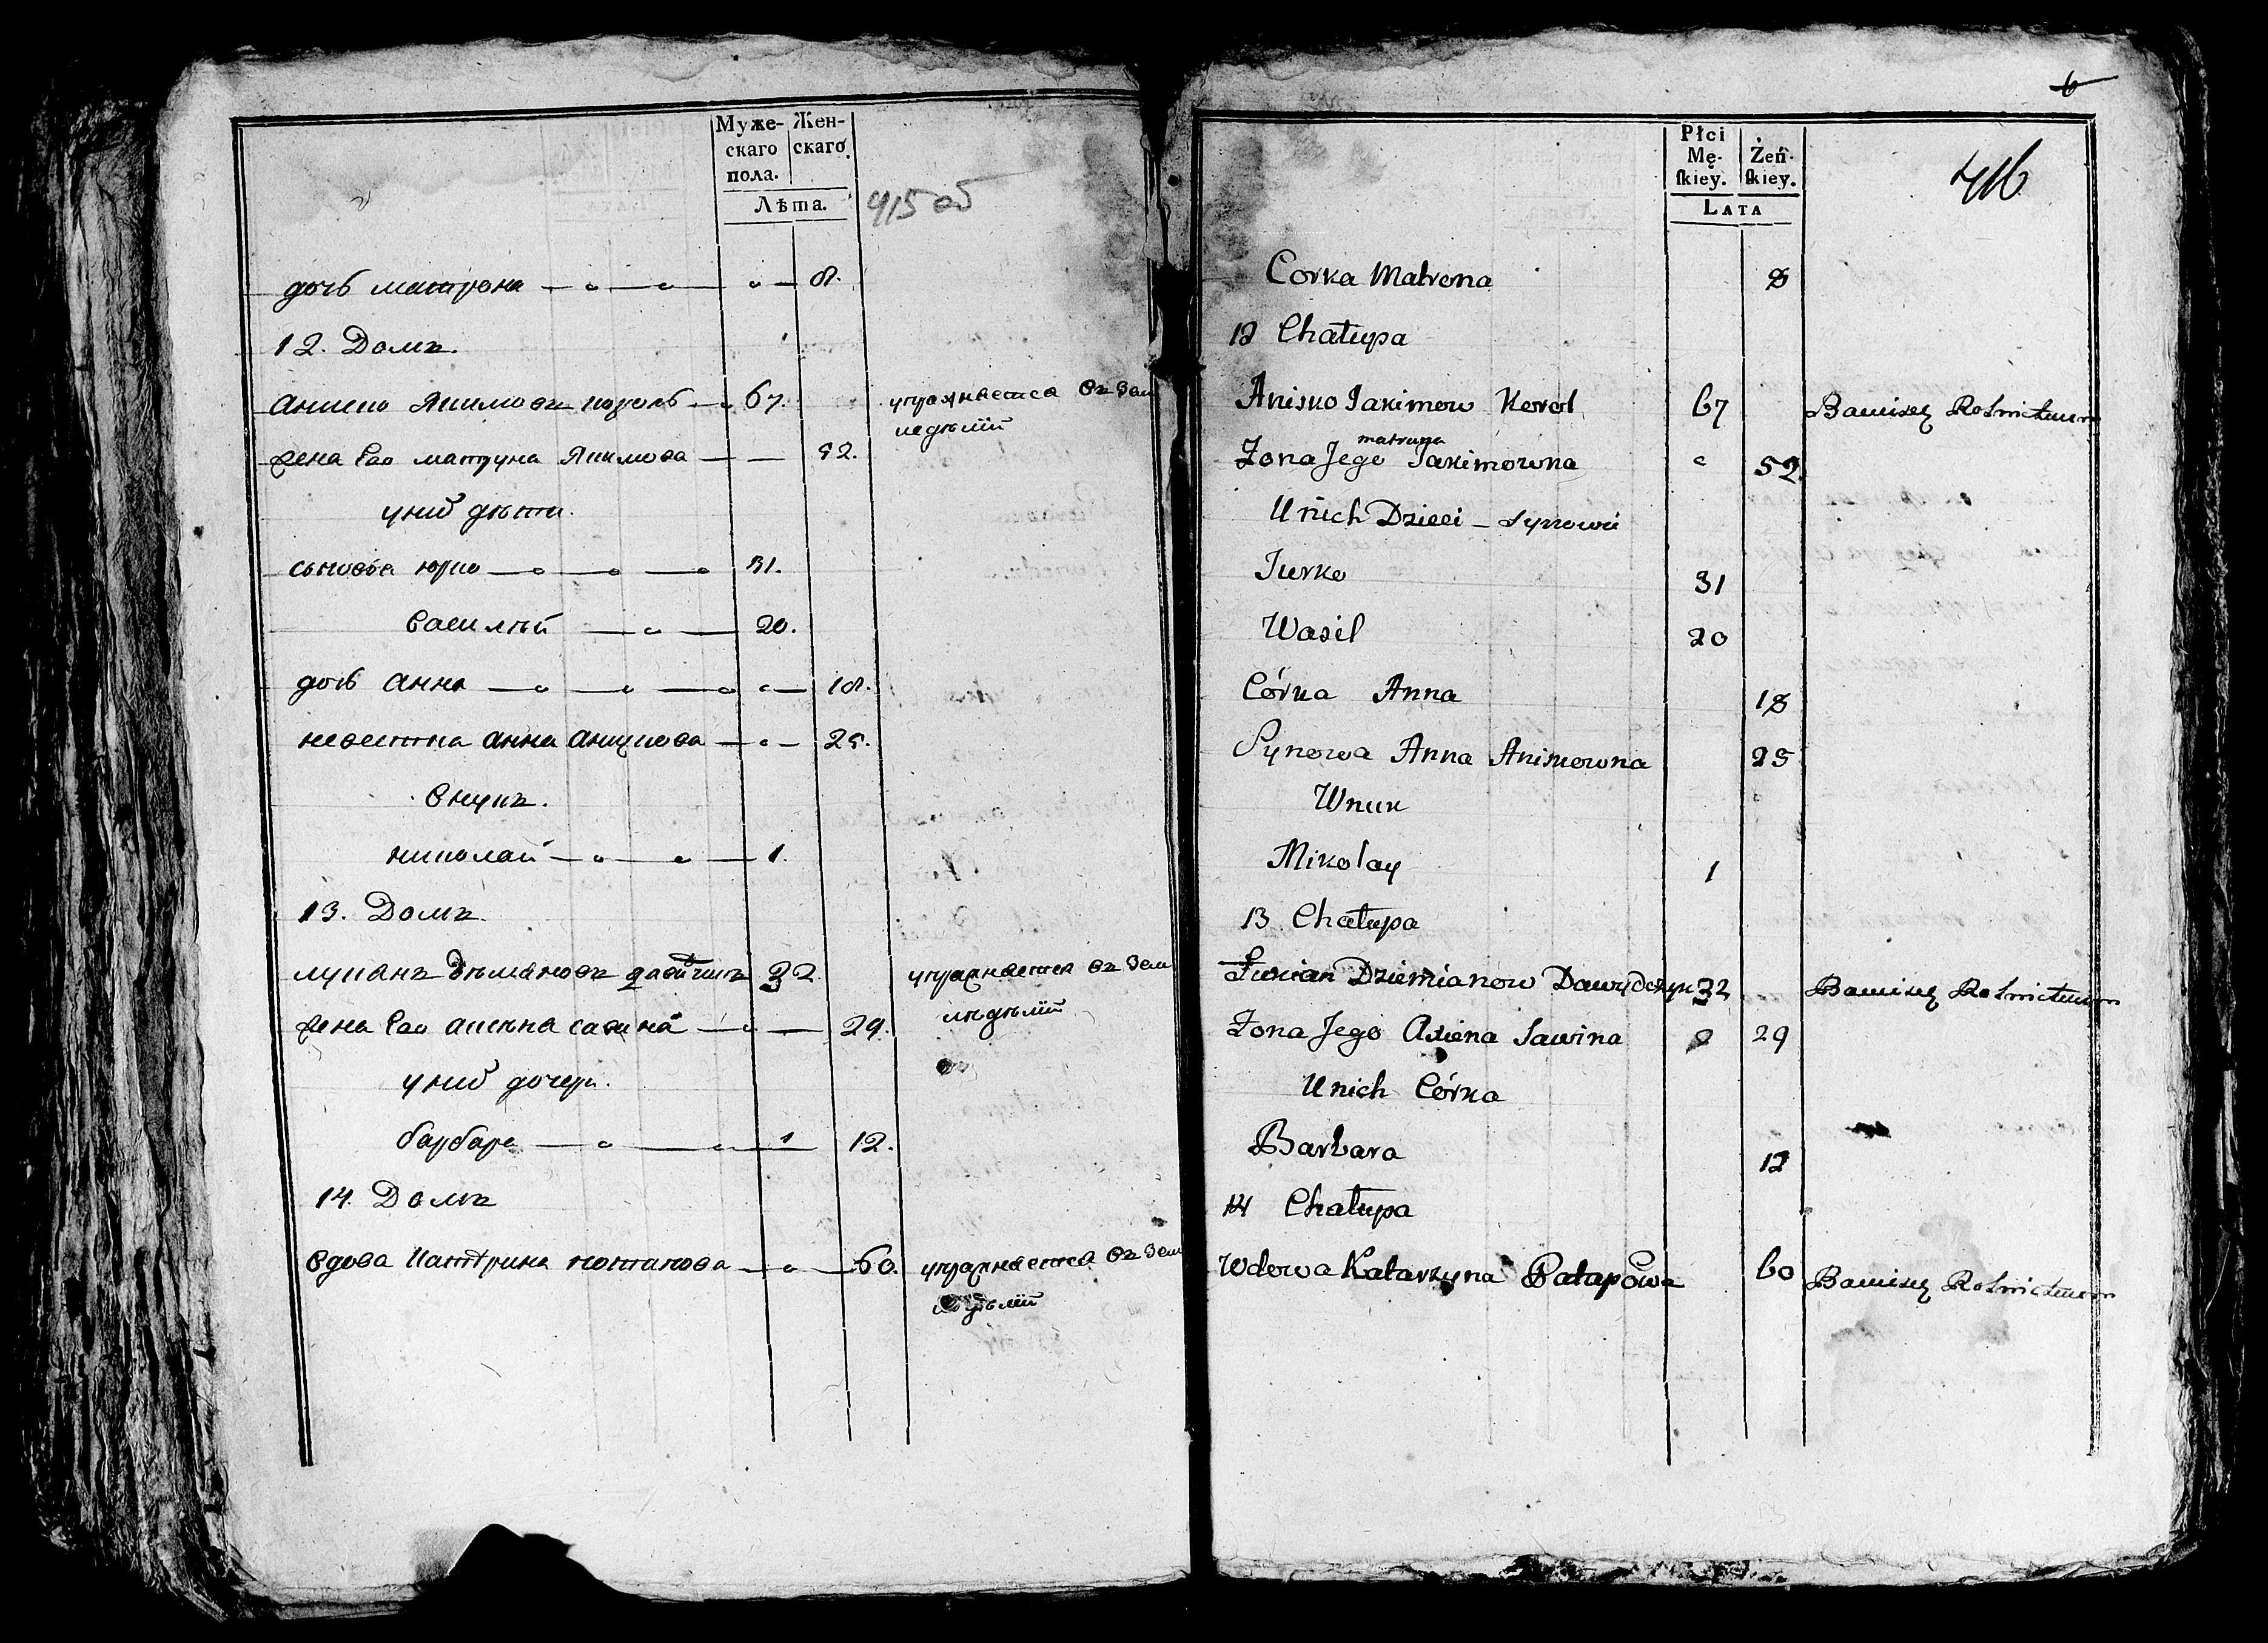 Муже-
скаго
пола.
Жен-
скаго.
Лѣта.
415 об
дочь матрона 8.
12. Домъ.
Аниско Якимовъ король 67. упражняется въ Зем
ледѣлїи
жена Его матруна Якимова 52.
у них дѣти.
сыновья юрко 31.
василѣй 20.
дочь Анна 18.
невестка анна анискова 25.
внукъ.
николай 1.
13. Домъ.
лукьянъ дѣмяновъ давидчикъ 32. упражняется въ Зем
ледѣлїи
жена Его аксѣна савина 29.
у них дочерь.
барбара 12.
14. Домъ
вдова Катерина потапова 60. упражняется въ Зем
ледѣлїи
6
Płci
Mę-
skiey.
Żeń-
skiey.
LATA
416
Corka Matrona 8
12 Chałupa
Anisko Jakimow Korol 67 Bawisię Rolnictwem
matruna
Zona Jego Jakimowna 52
U nich Dzieci - synowie
Jurko 31
Wasil 20
Córka Anna 18
Synowa Anna Aniskowna 25
Wnuk
Mikolay 1
13 Chałupa
Łukian Dziemianow Dawydczyk 32 Bawisię Rolnictwem
Zona Jego Axiena Sawina 29
U nich Córka
Barbara 12
14 Chałupa
Wdowa Katarzyna Patapowa 60 Bawisię Rolnictwem